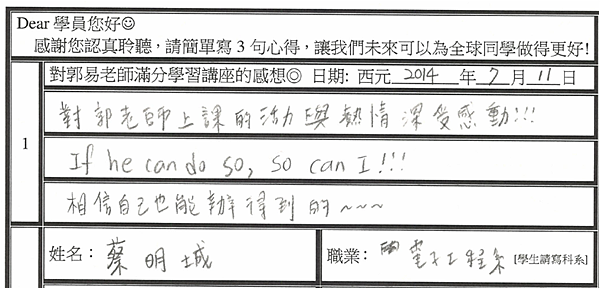 Dear 學員您好☺
感謝您認真聆聽，請簡單寫 3 句心得，讓我們未來可以為全球同學做得更好!
對郭易老師滿分學習講座的感想◎ 日期: 西元 2014 年 7 月 11 日
1
對郭老師上課的活力與熱情深受感動!!!
If he can do so, so can I!!!
相信自己也能辦得到的~~~
姓名： 蔡明城
職業： 電子工程系 [學生請寫科系]